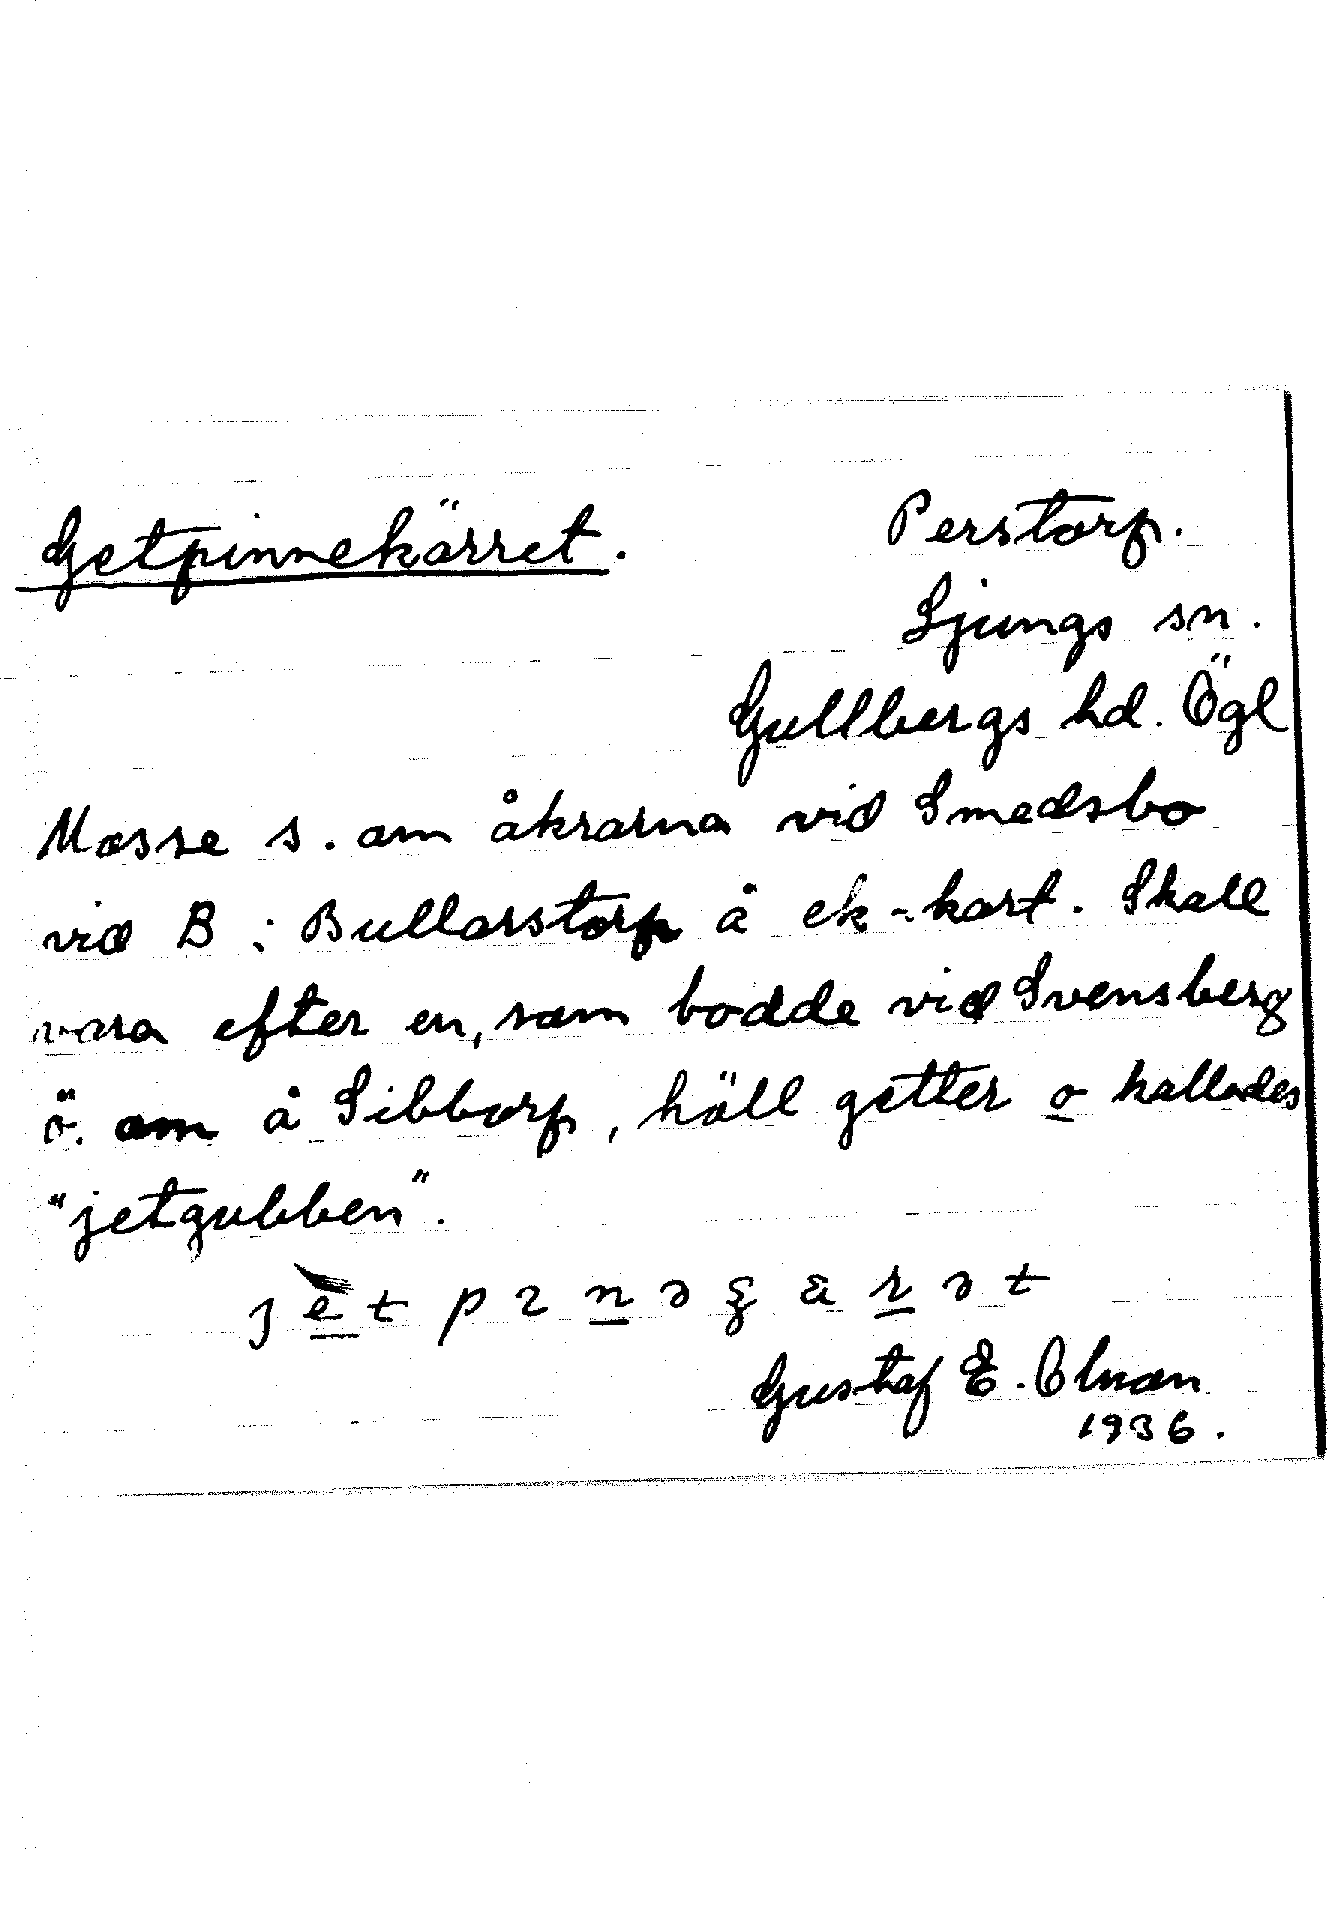 Getpinnekärret.
Perstorp.
Ljungs sn.
Gullbergs hd. Ögl
Mosse s. om åkrarna vid Smedsbo
vid B i Bullarstorp å ek-kart. Skall
vara efter en, som bodde vid Svensberg
ö. om å Sibborp, höll getter o kallades
"jetgubben".
Gustaf E. Olson
1936.